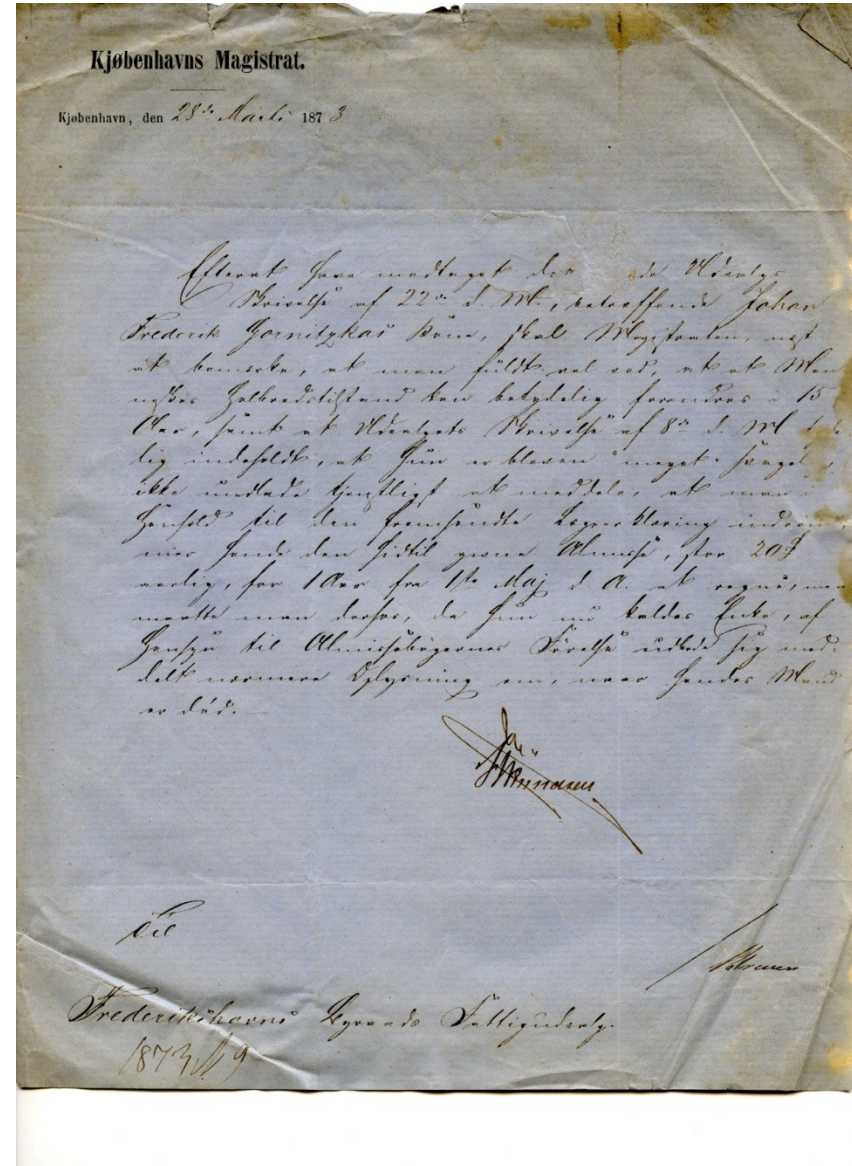 Kjøbenhavns Magistrat.
Kjøbenhavn, den 28de Marts 1873
Efterat have modtaget det Udvalgs
Skrivelse af 22de d. M., betræffende Johan
Frederik Gornitzkas Kone, skal Magistraten, næst
at bemærke, at man fuldt vel veed, at et Men
neskes Helbredstilstand kan betydelig forandres i 15
Aar, samt at Udvalgets Skrivelse af 8de d. M.
lig indeholdt, at hun er bleven "meget svagel",
ikke undlade tjenstligst at meddele, at man i
Henhold til den fremsendte Lægeerklæring indrøm
mer hende den hidtil givne Almisse, stor 20
aarlig, for 1 Aar fra 1ste Maj d. A. at regne, men
maatte man derhos, da hun nu kaldes Enke, af
Hensyn til Almissebøgernes Førelse udbede sig med-
delt nærmere Oplysning om, naar hendes Mand
er død.
Til
Frederikshavns Byraads Fattigudvalg.
1873